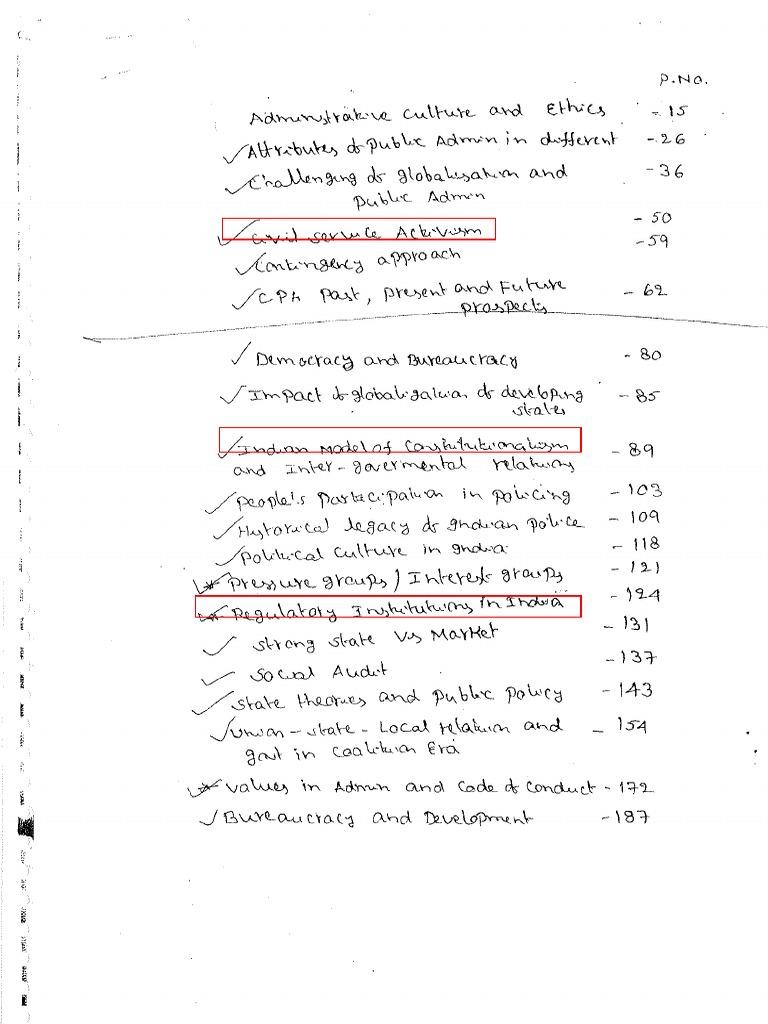 P.NO.
Administrative Culture and Ethics -15
Attributes of Public Admin in different -26
Challenging of globalisation and -36
Public Admin
Civil service Activism -50
-59
Contingency approach
CPA Past, Present and Future -62
prospects
Democracy and Bureaucracy -80
Impact of globalization of developing -85
states
Indian Model of Constitutionalism -89
and Inter-govermental relations
People's Participation in policing -103
Historical legacy of Indian police -109
Political Culture in India -118
Pressure groups / Interest groups -121
Regulatory Institutions in India -124
Strong State Vs Market -131
Social Audit -137
State theories and Public Policy -143
Union-State-Local relation and - 154
govt in Coalition Era
Values in Admin and Code of Conduct -172
Bureaucracy and Development -187